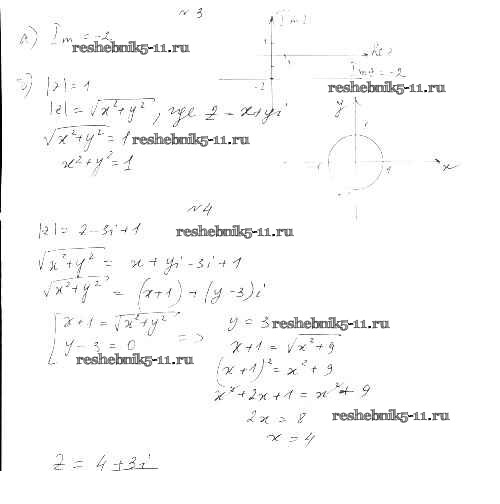 № 3
а) Im = -2
reshebnik5-11.ru
Im z
Re z
-2
Im z = -2
reshebnik5-11.ru
|z| = 1
|z| = √x²+y², где z = x+yi
√x²+y² = 1 reshebnik5-11.ru
x²+y² = 1
y
1
1
x
№ 4
|z| = z - 3i + 1 reshebnik5-11.ru
√x²+y² = x + yi - 3i + 1
√x²+y² = (x+1) + (y-3)i
x+1 = √x²+y²
y-3 = 0
=>
reshebnik5-11.ru
y = 3 reshebnik5-11.ru
x+1 = √x²+9
(x+1)² = x² + 9
x² + 2x + 1 = x² + 9
2x = 8 reshebnik5-11.ru
x = 4
z = 4 + 3i